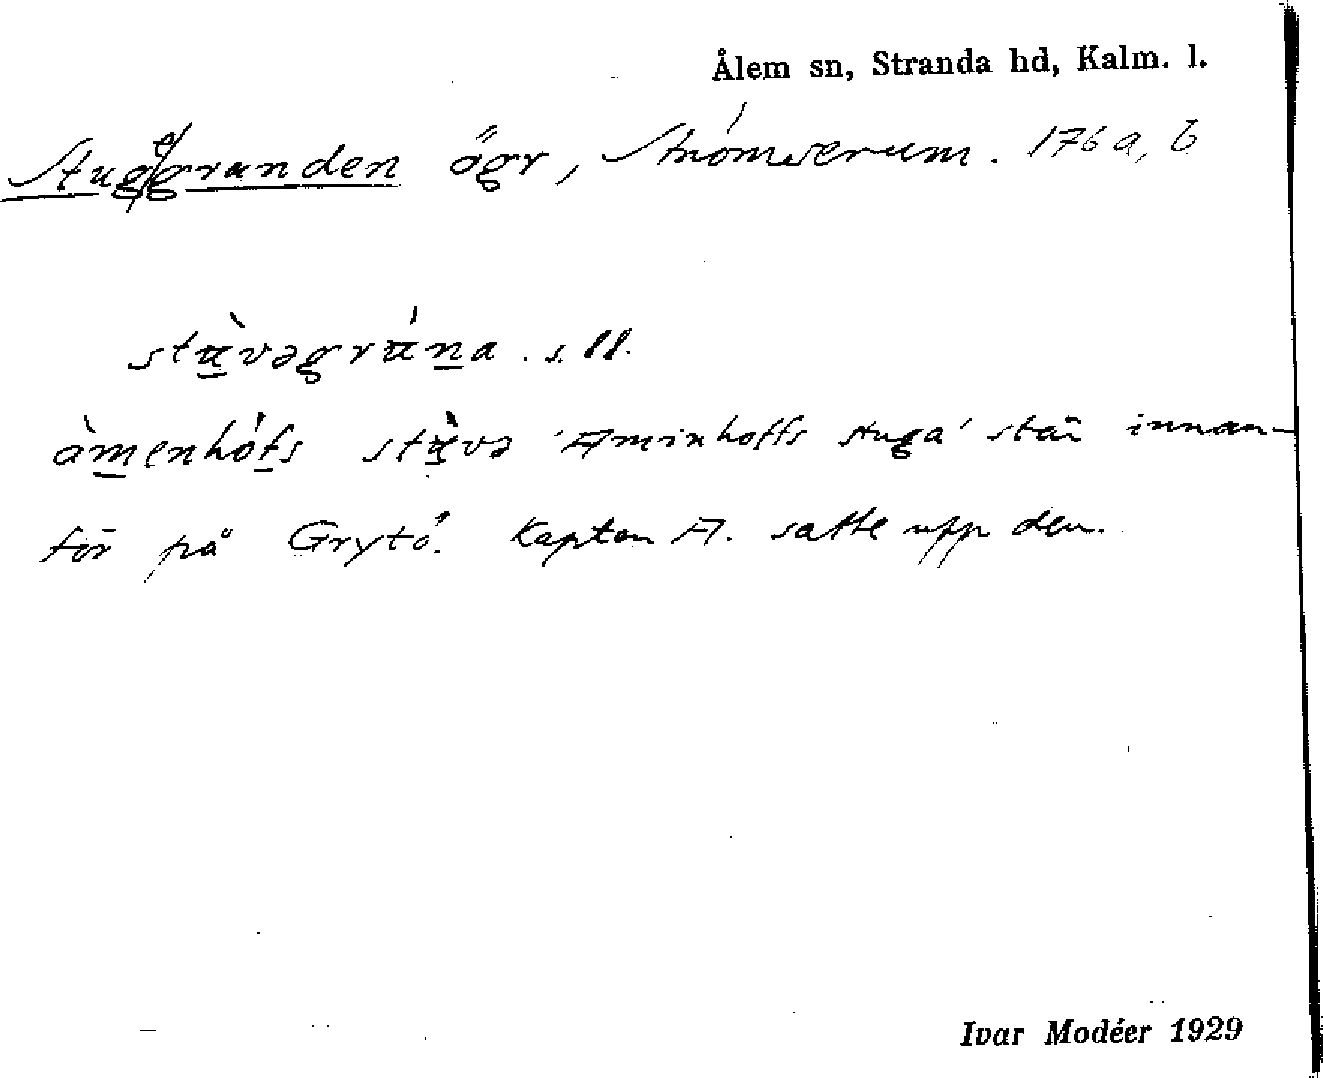 Ålem sn, Stranda hd, Kalm. l.
Stugegrunden ögr, Strömserum. 176 a, b
stùvəgrúna . s. ll.
àmenhófs stùvə 'Aminhoffs stuga' står innan-
för på Grytö. Kapten A. satte upp den.
Ivar Modéer 1929